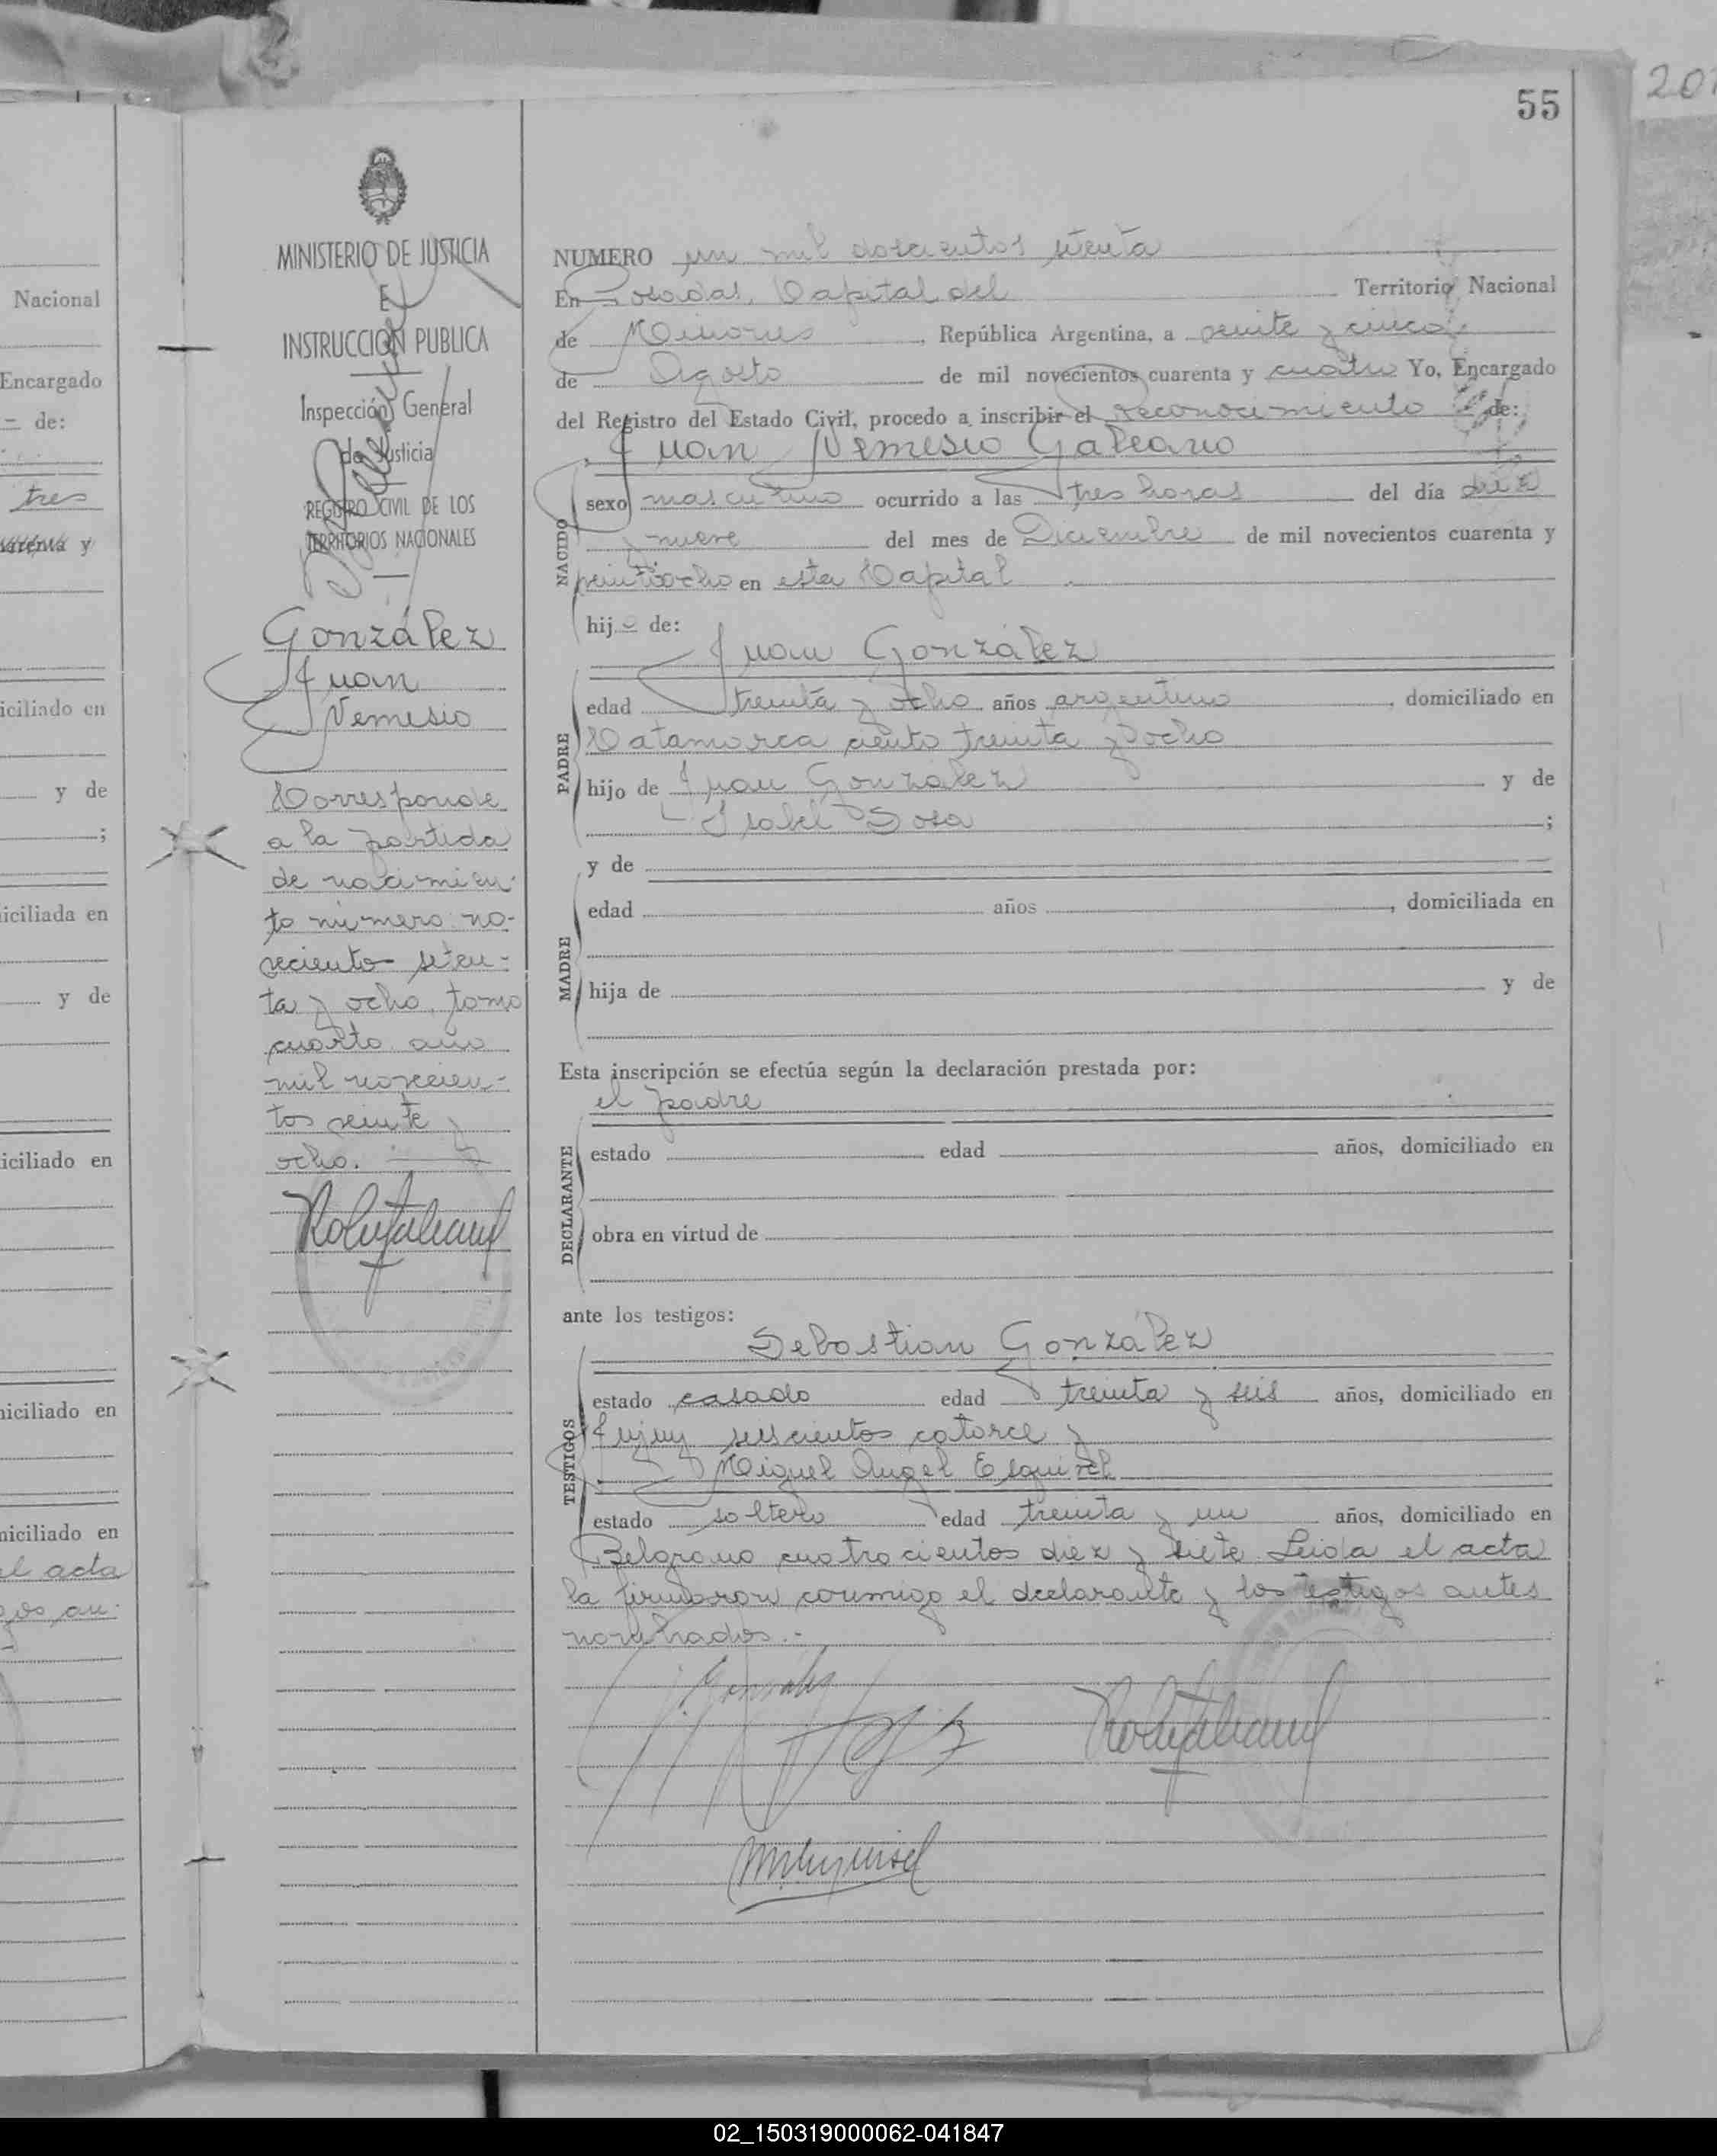 55
201
Nacional
Encargado
de:
tres
y
iciliado en
y de
;
iciliada en
y de
iciliado en
niciliado en
niciliado en
el acta
MINISTERIO DE JUSTICIA
E
INSTRUCCION PUBLICA
Inspección General
de Justicia
REGISTRO CIVIL DE LOS
TERRITORIOS NACIONALES
González
Juan
Nemesio
Corresponde
a la partida
de nacimien-
to número no-
veciento seten-
ta y ocho, tomo
cuarto año
mil novecien-
tos veinte y
ocho.
NUMERO un mil doscientos setenta
En Posadas, Capital del Territorio Nacional
de Misiones, República Argentina, a veinte y cinco
de Agosto de mil novecientos cuarenta y cuatro Yo, Encargado
del Registro del Estado Civil, procedo a inscribir el reconocimiento de:
Juan Nemesio Galeano
NACIDO
sexo masculino ocurrido a las tres horas del día diez
y nueve del mes de Diciembre de mil novecientos cuarenta y
veintiocho en esta Capital
hijo de:
Juan González
PADRE
edad treinta y ocho años argentino, domiciliado en
Catamarca ciento treinta y ocho
hijo de Juan González y de
Isabel Sosa;
y de
MADRE
edad años, domiciliada en
hija de y de
Esta inscripción se efectúa según la declaración prestada por:
el padre
DECLARANTE
estado edad años, domiciliado en
obra en virtud de
ante los testigos:
Sebastian González
TESTIGOS
estado casado edad treinta y seis años, domiciliado en
Jujuy seiscientos catorce y
Miguel Angel Esquivel
estado soltero edad treinta y un años, domiciliado en
Belgrano cuatrocientos diez y siete. Leida el acta
la firmaron conmigo el declarante y los testigos antes
nombrados.-
02_150319000062-041847